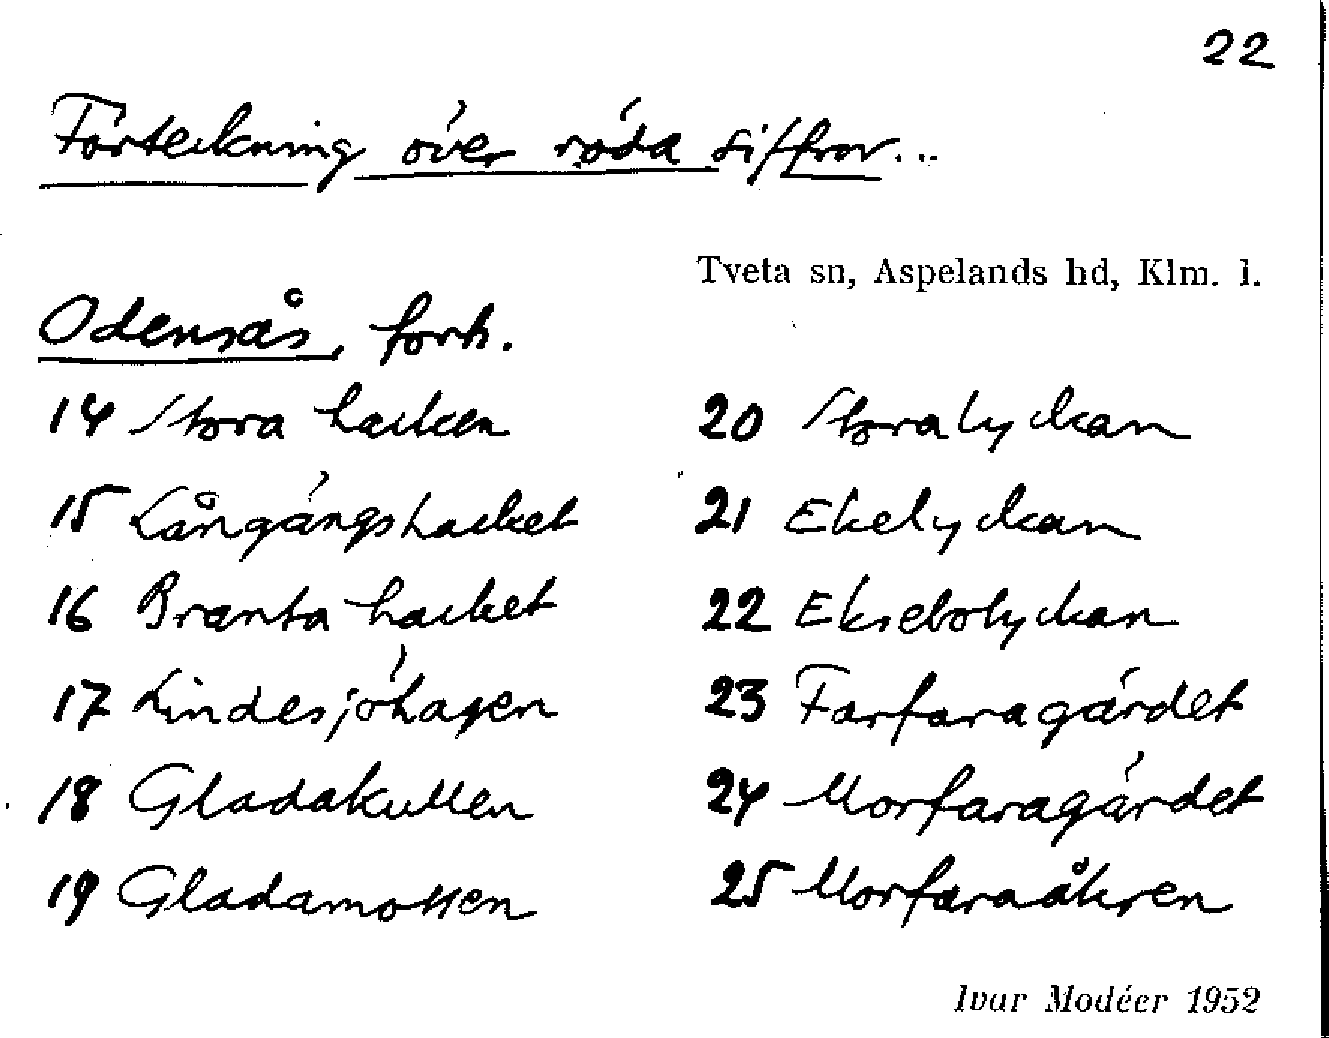 22
Förteckning över röda siffror...
Tveta sn, Aspelands hd, Klm. l.
Odensås, forts.
14 Stora hacken
15 Långängshacket
16 Branta hacket
17 Lindesjöhagen
18 Gladakullen
19 Gladamossen
20 Storalyckan
21 Ekelyckan
22 Eksebolyckan
23 Farfaragärdet
24 Morfaragärdet
25 Morfaraåkren
Ivar Modéer 1952